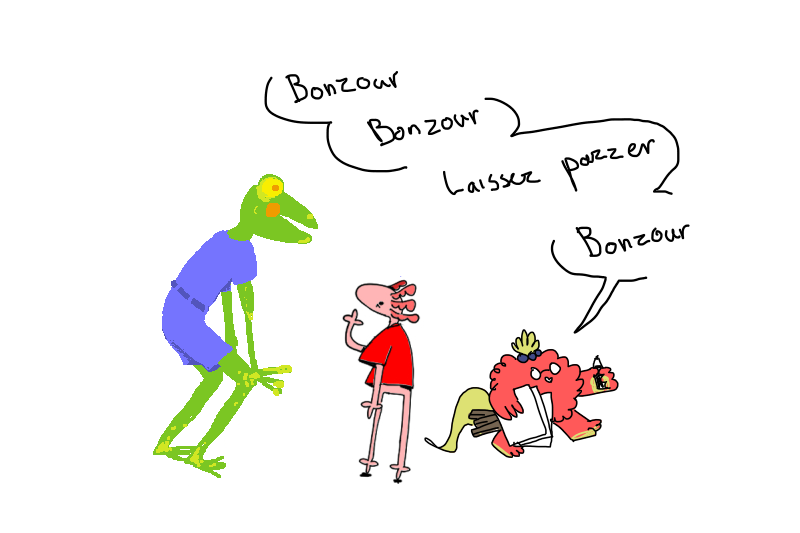 Bonzour
Bonzour
Laissez pazzer
Bonzour